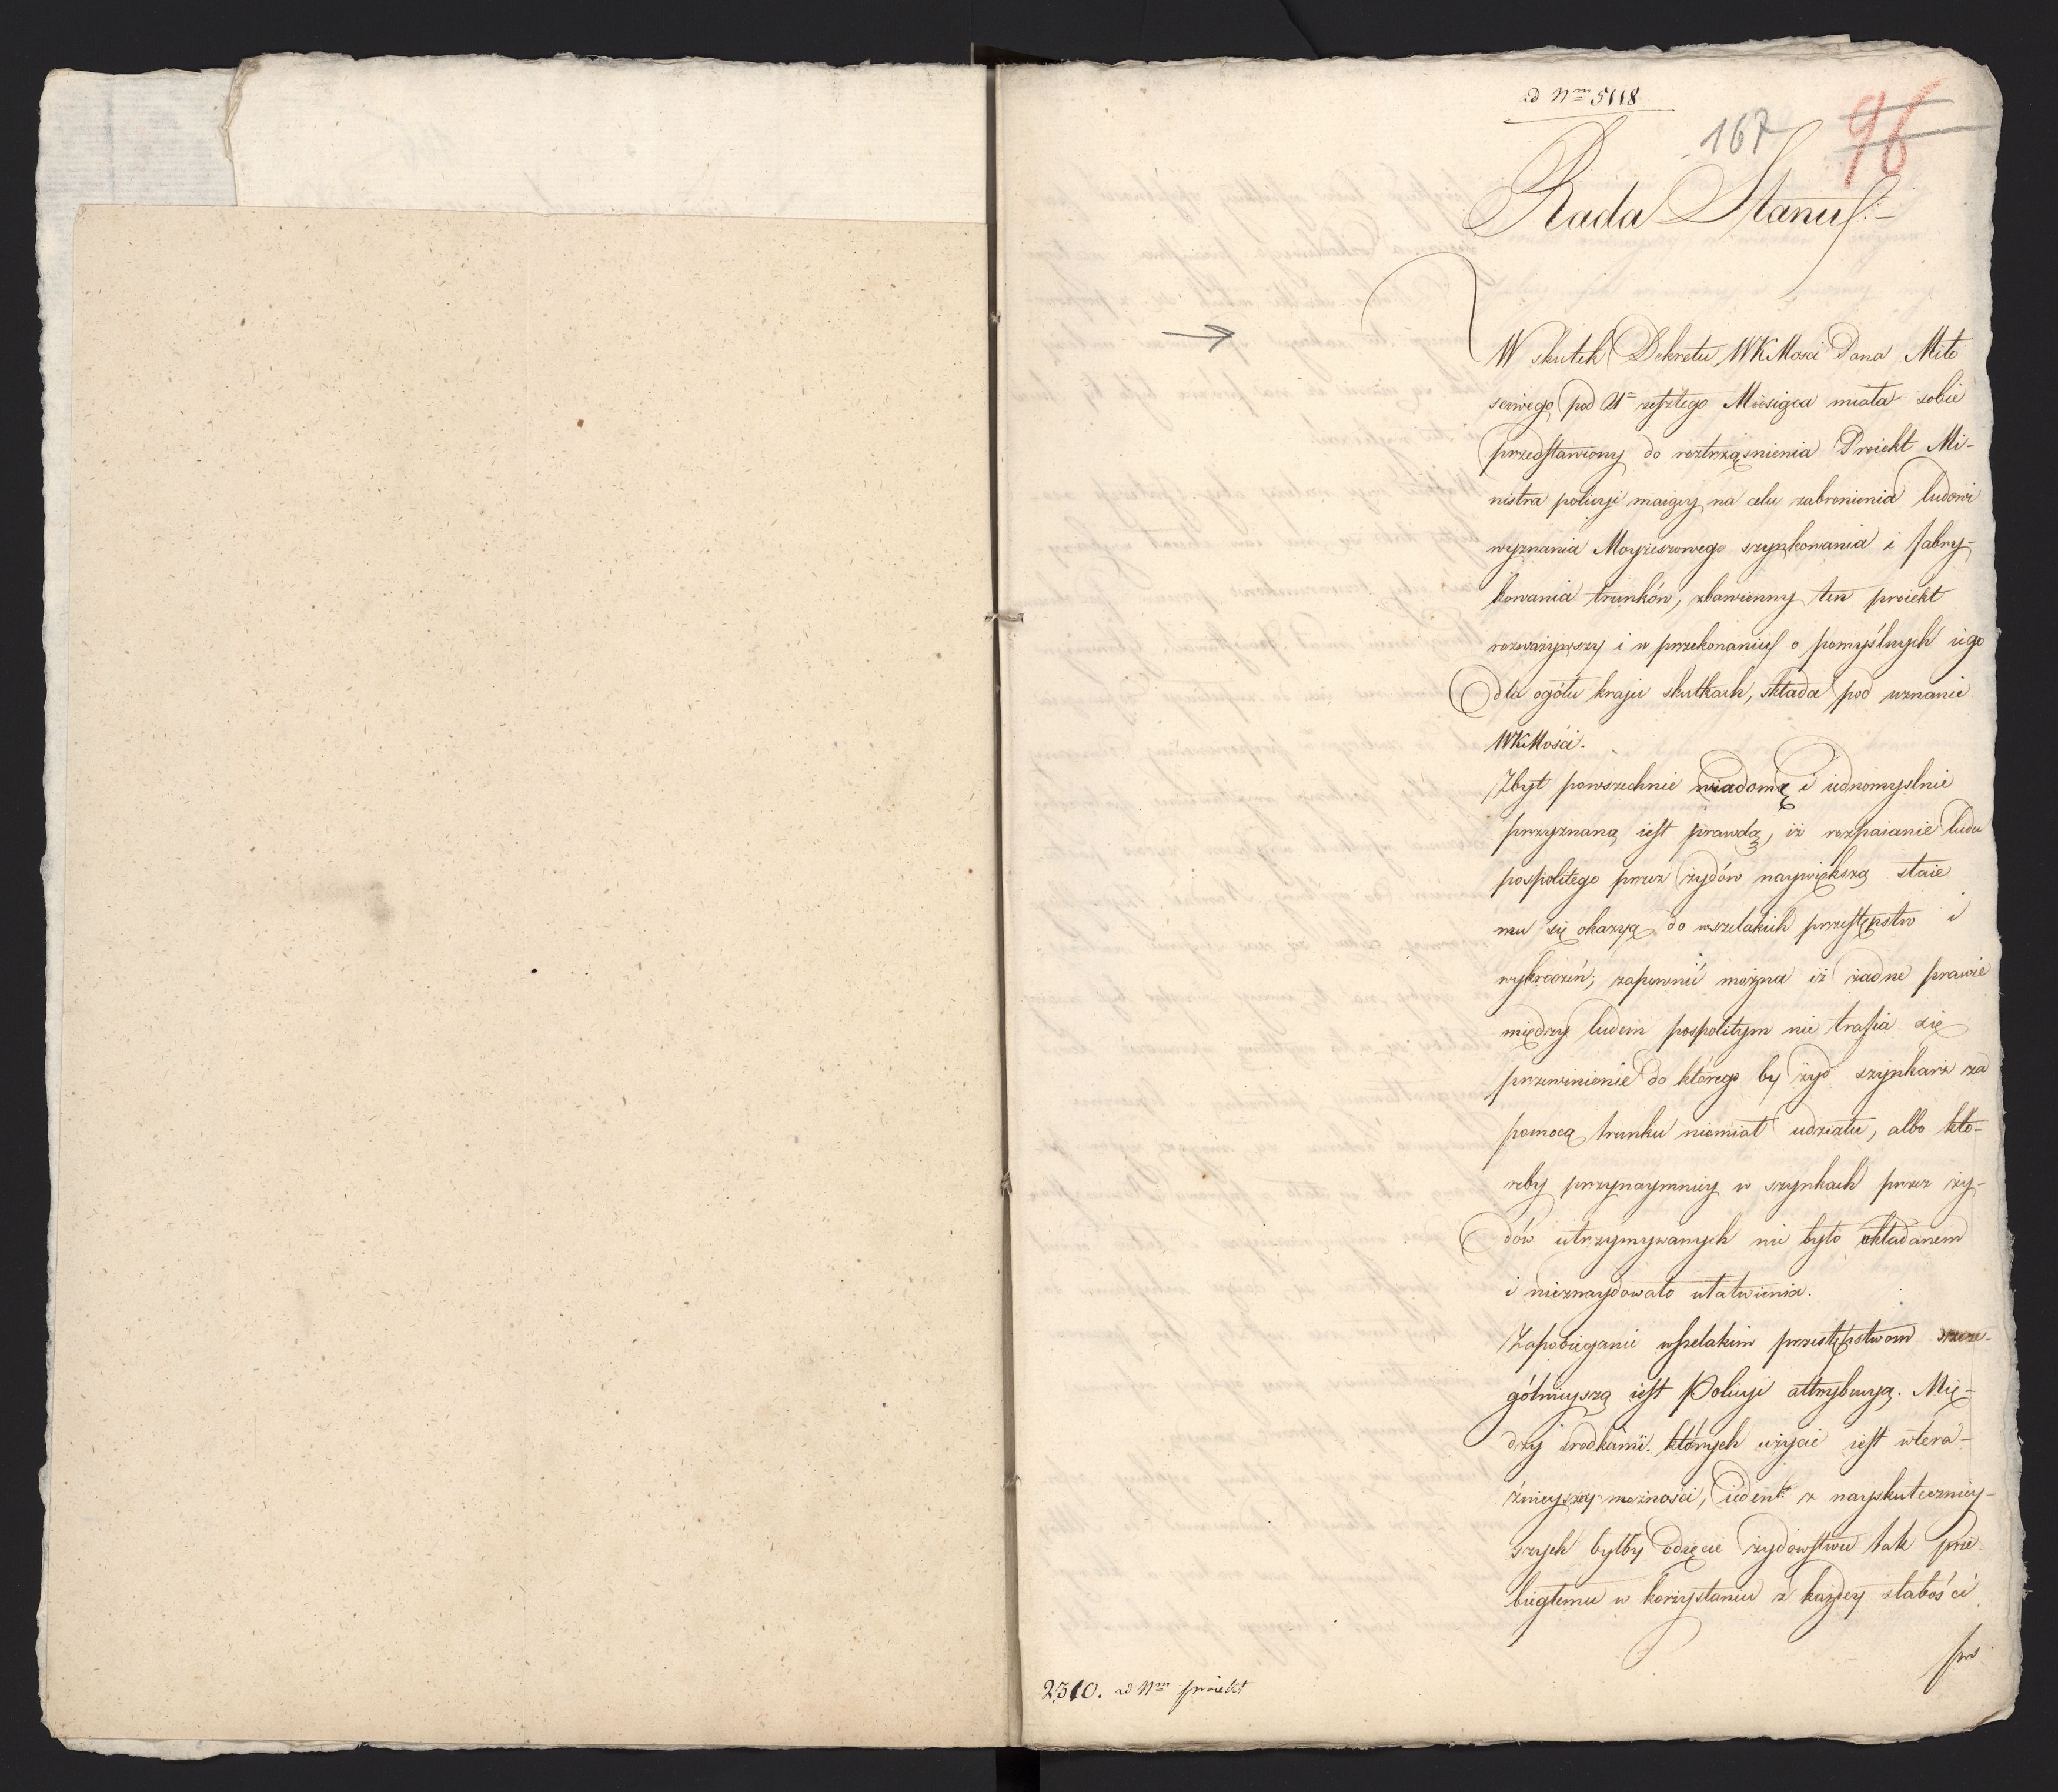 ad Nrm 5118
167
96
Rada Stanu.
W skutek Dekretu WKMosci Pana Miło
sciwego pod 21 zeszłego Miesiąca miała sobie
przedstawiony do roztrząsnienia Proiekt Mi-
nistra policyi maiący na celu zabronienia ludowi
wyznania Moyżeszowego szynkowania i fabry-
kowania trunków, zbawienny ten proiekt
rozważywszy i w przekonaniu o pomyślnych iego
dla ogółu kraju skutkach, składa pod uznanie
WKMości.
Zbyt powszechnie wiadomą i iednomyslnie
przyznaną iest prawdą, iż rozpaianie ludu
pospolitego przez żydów naywiększą staie
mu się okazyą do wszelakich przestępstw i
wykroczeń; zapewnić można iż żadne prawie
między ludem pospolitym nie trafia się
przewinienie do którego by żyd szynkarz za
pomocą trunku niemiał udziału, albo któ-
reby przynaymniey w szynkach przez ży-
dów utrzymywanych nie było układanem
i nieznaydowało ułatwienia.
Zapobieganie wszelakim przestępstwom szcze-
gólnieyszą iest Policyi attrybucyą. Mię-
dzy srodkami których użycie iest wtera-
źnieyszey możności, ieden z nayskuteczniey-
szych byłby odięcie żydowstwu tak prze
biegłemu w korzystaniu z każdey słabości
pro
2310. ad Nrm proiekt